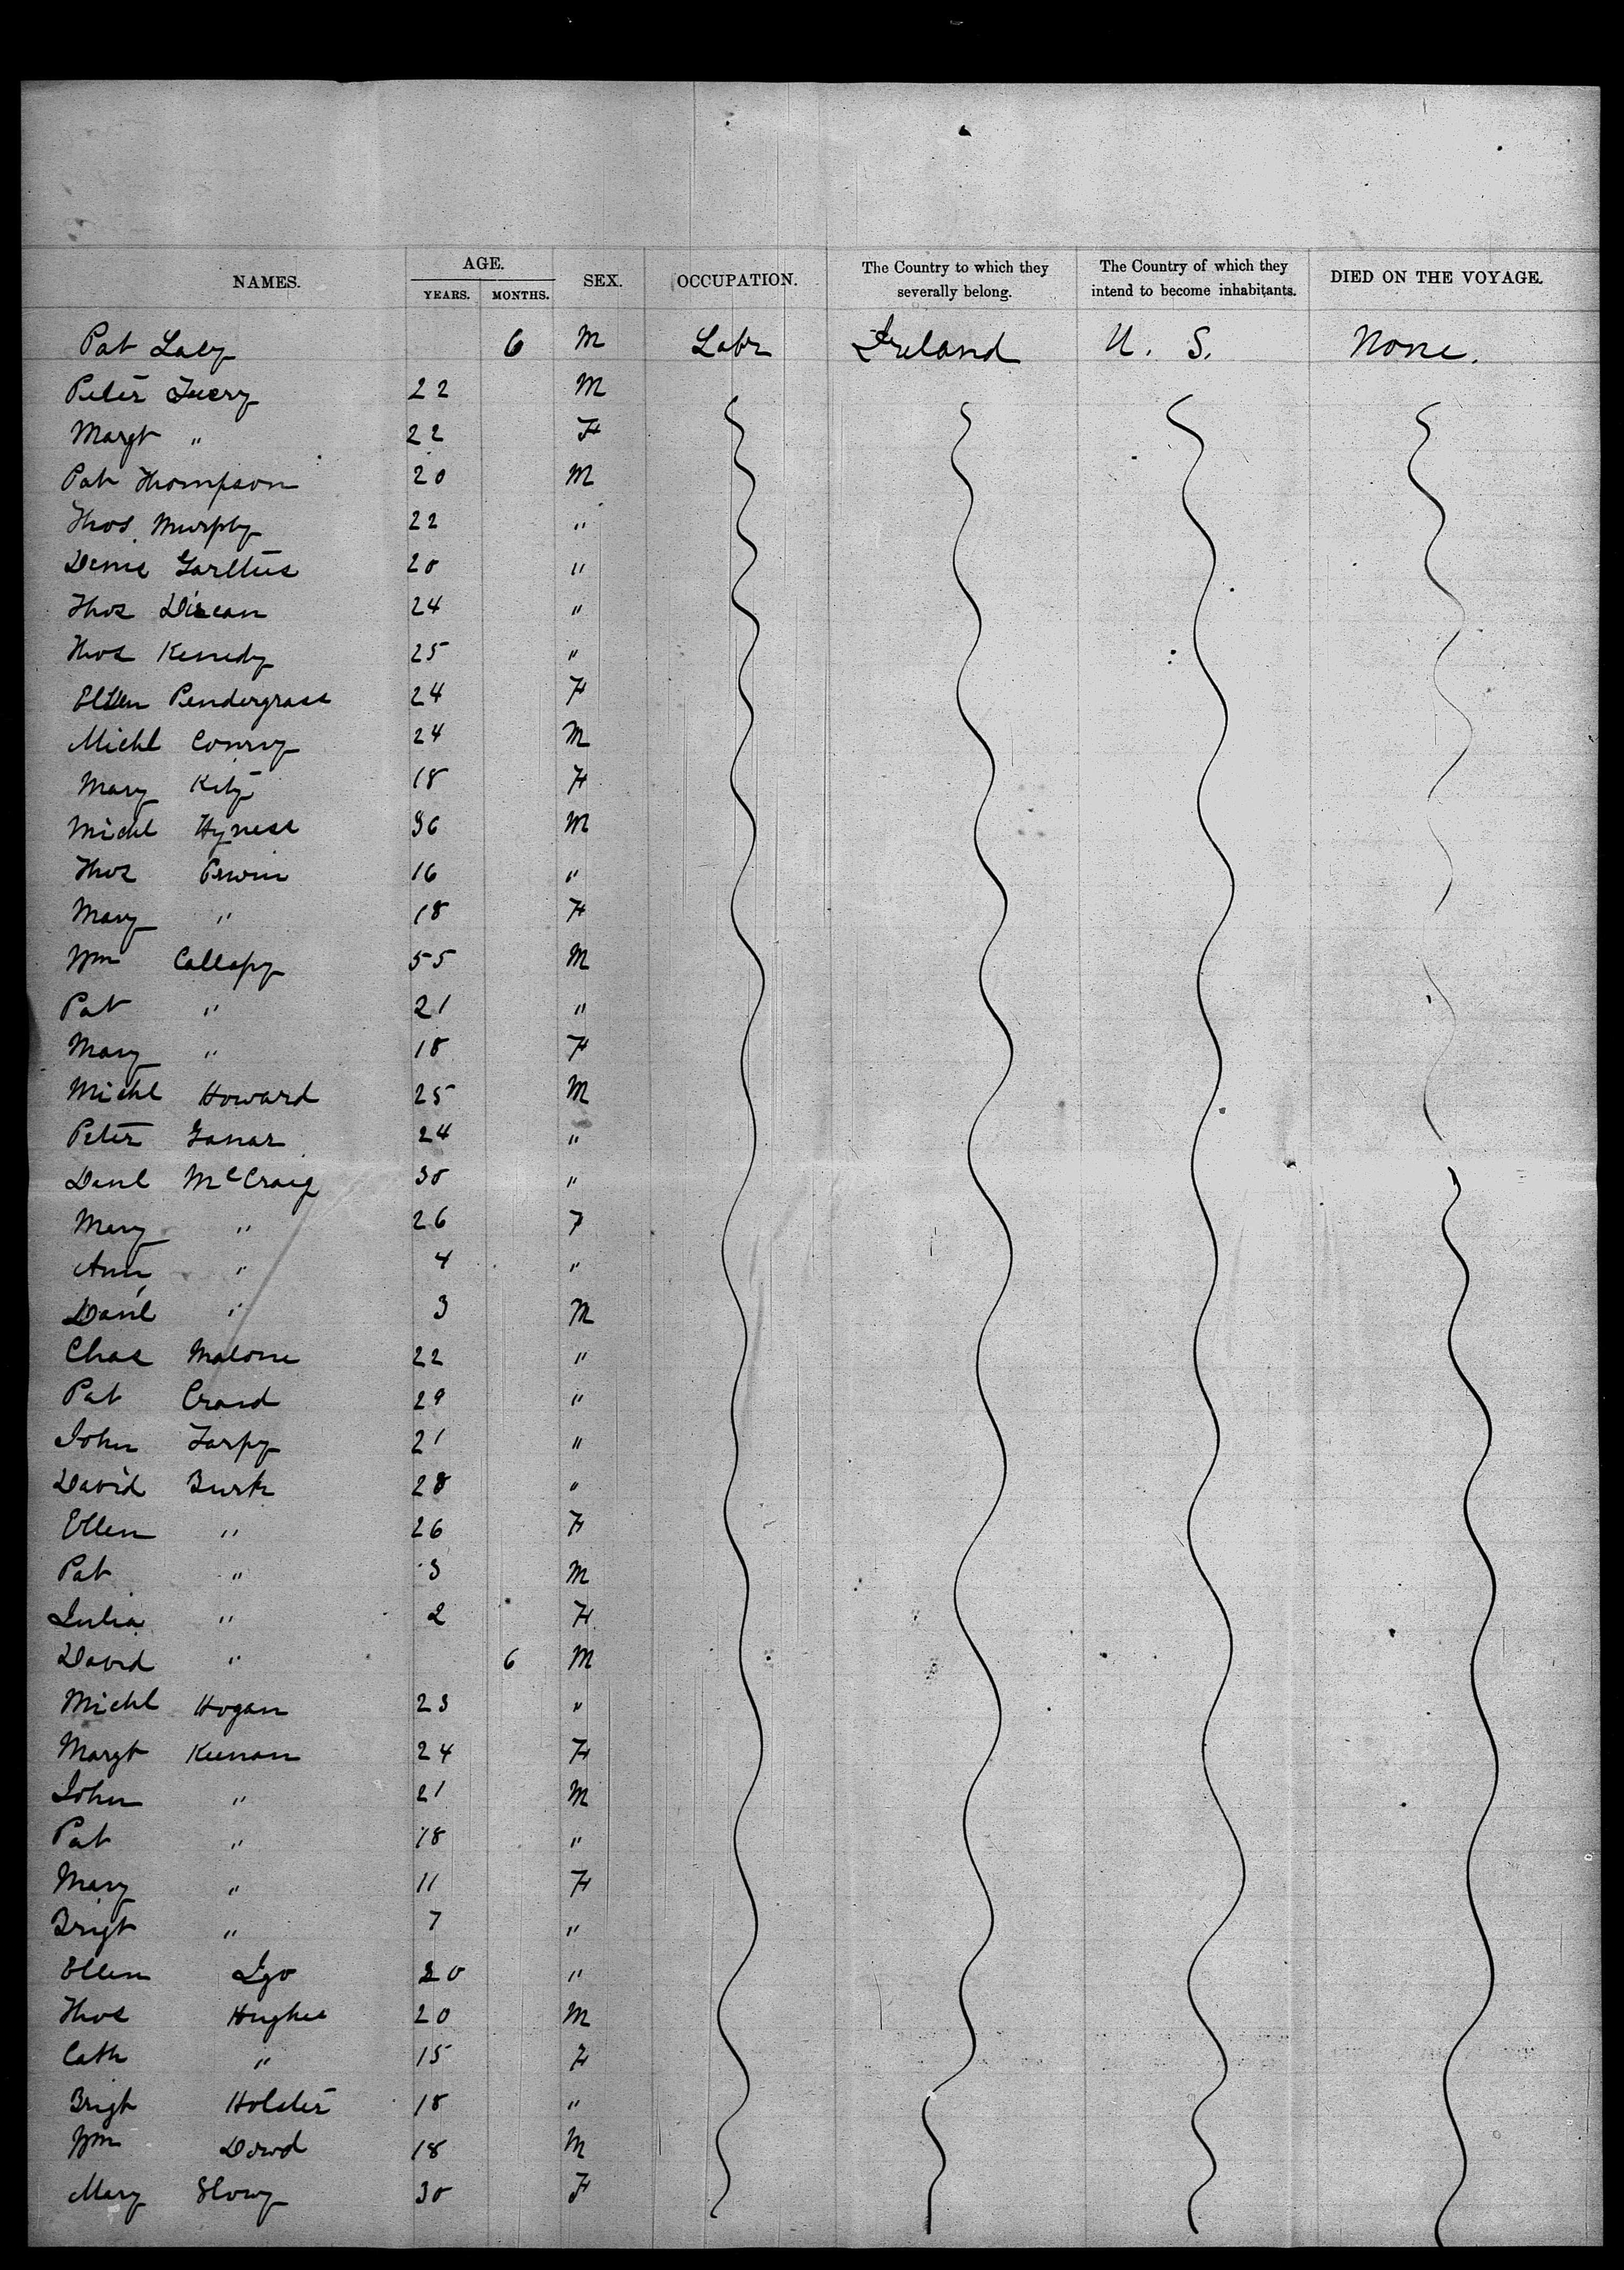 NAMES. AGE. YEARS. MONTHS. SEX. OCCUPATION. The Country to which they severally belong. The Country of which they intend to become inhabitants. DIED ON THE VOYAGE.
Pat 6 M Labr Ireland U. S. None.
Peter 22 M
Margt " 22 F
Pat Thompson 20 M
Thos Murphy 22 "
Denis 20 "
Thos 24 "
Thos Kenedy 25 "
Ellen Pendergrass 24 F
Michl Conroy 24 M
Mary 18 F
Michl Hyness 36 M
Thos 16 "
Mary " 18 F
Wm 55 M
Pat " 21 "
Mary " 18 F
Michl Howard 25 M
Peter 24 "
Danl McCraig 30 "
Mary " 26 F
Ann " 4 "
Danl " 3 M
Chas Malone 22 "
Pat 29 "
John Tarpy 21 "
David Burk 28 "
Ellen " 26 F
Pat " 3 M
Julia " 2 F
David " 6 M
Michl Hogan 23 "
Margt Keenan 24 F
John " 21 M
Pat " 18 "
Mary " 11 F
Brigt " 7 "
Ellen Igo 20 "
Thos Hughes 20 M
Cath " 15 F
Brigt Holster 18 "
Wm Dowd 18 M
Mary 30 F